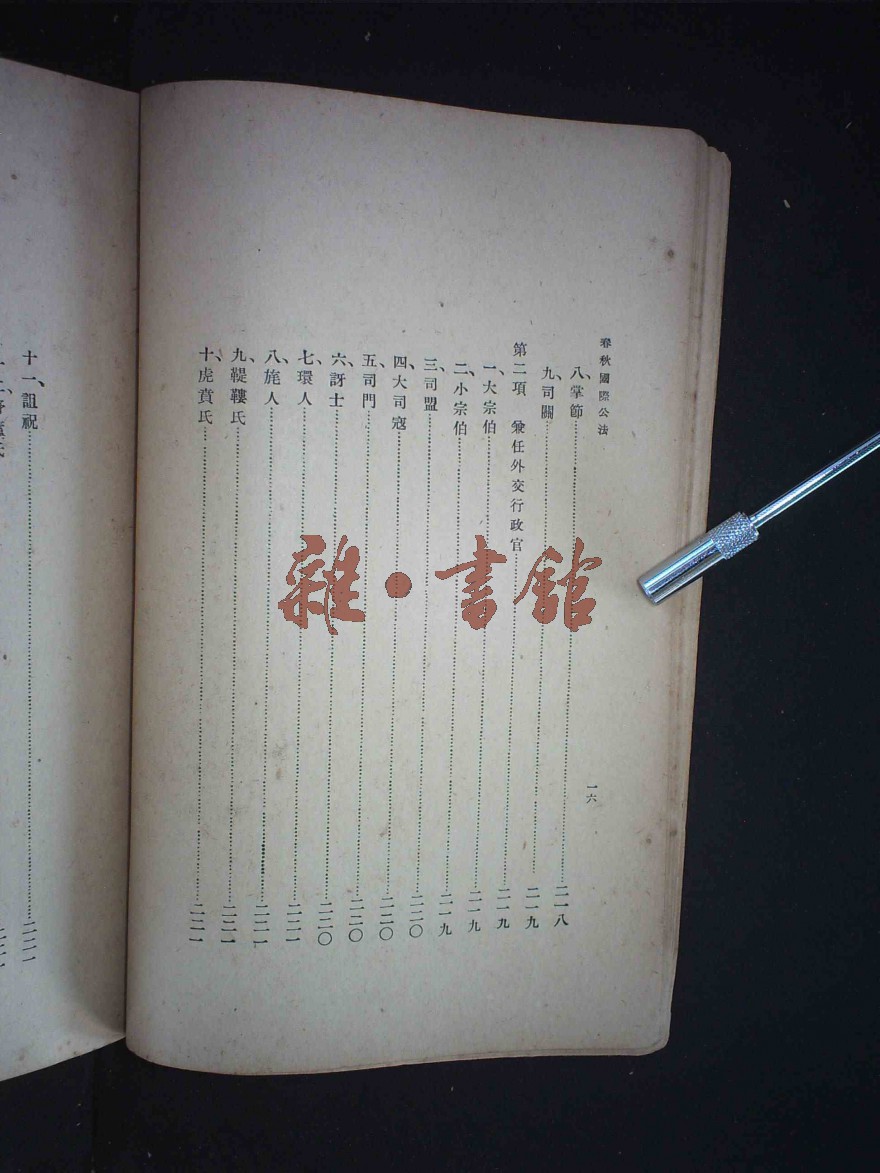 春秋國際公法
一六
八、掌節……二一八
九、司關……二一九
第二項　兼任外交行政官……二一九
一、大宗伯……二一九
二、小宗伯……二一九
三、司盟……二二〇
四、大司寇……二二〇
五、司門……二二〇
六、訝士……二二〇
七、環人……二二一
八、旄人……二二一
九、鞮鞻氏……二二一
十、虎賁氏……二二一
十一、詛祝……二二一
雜·書館